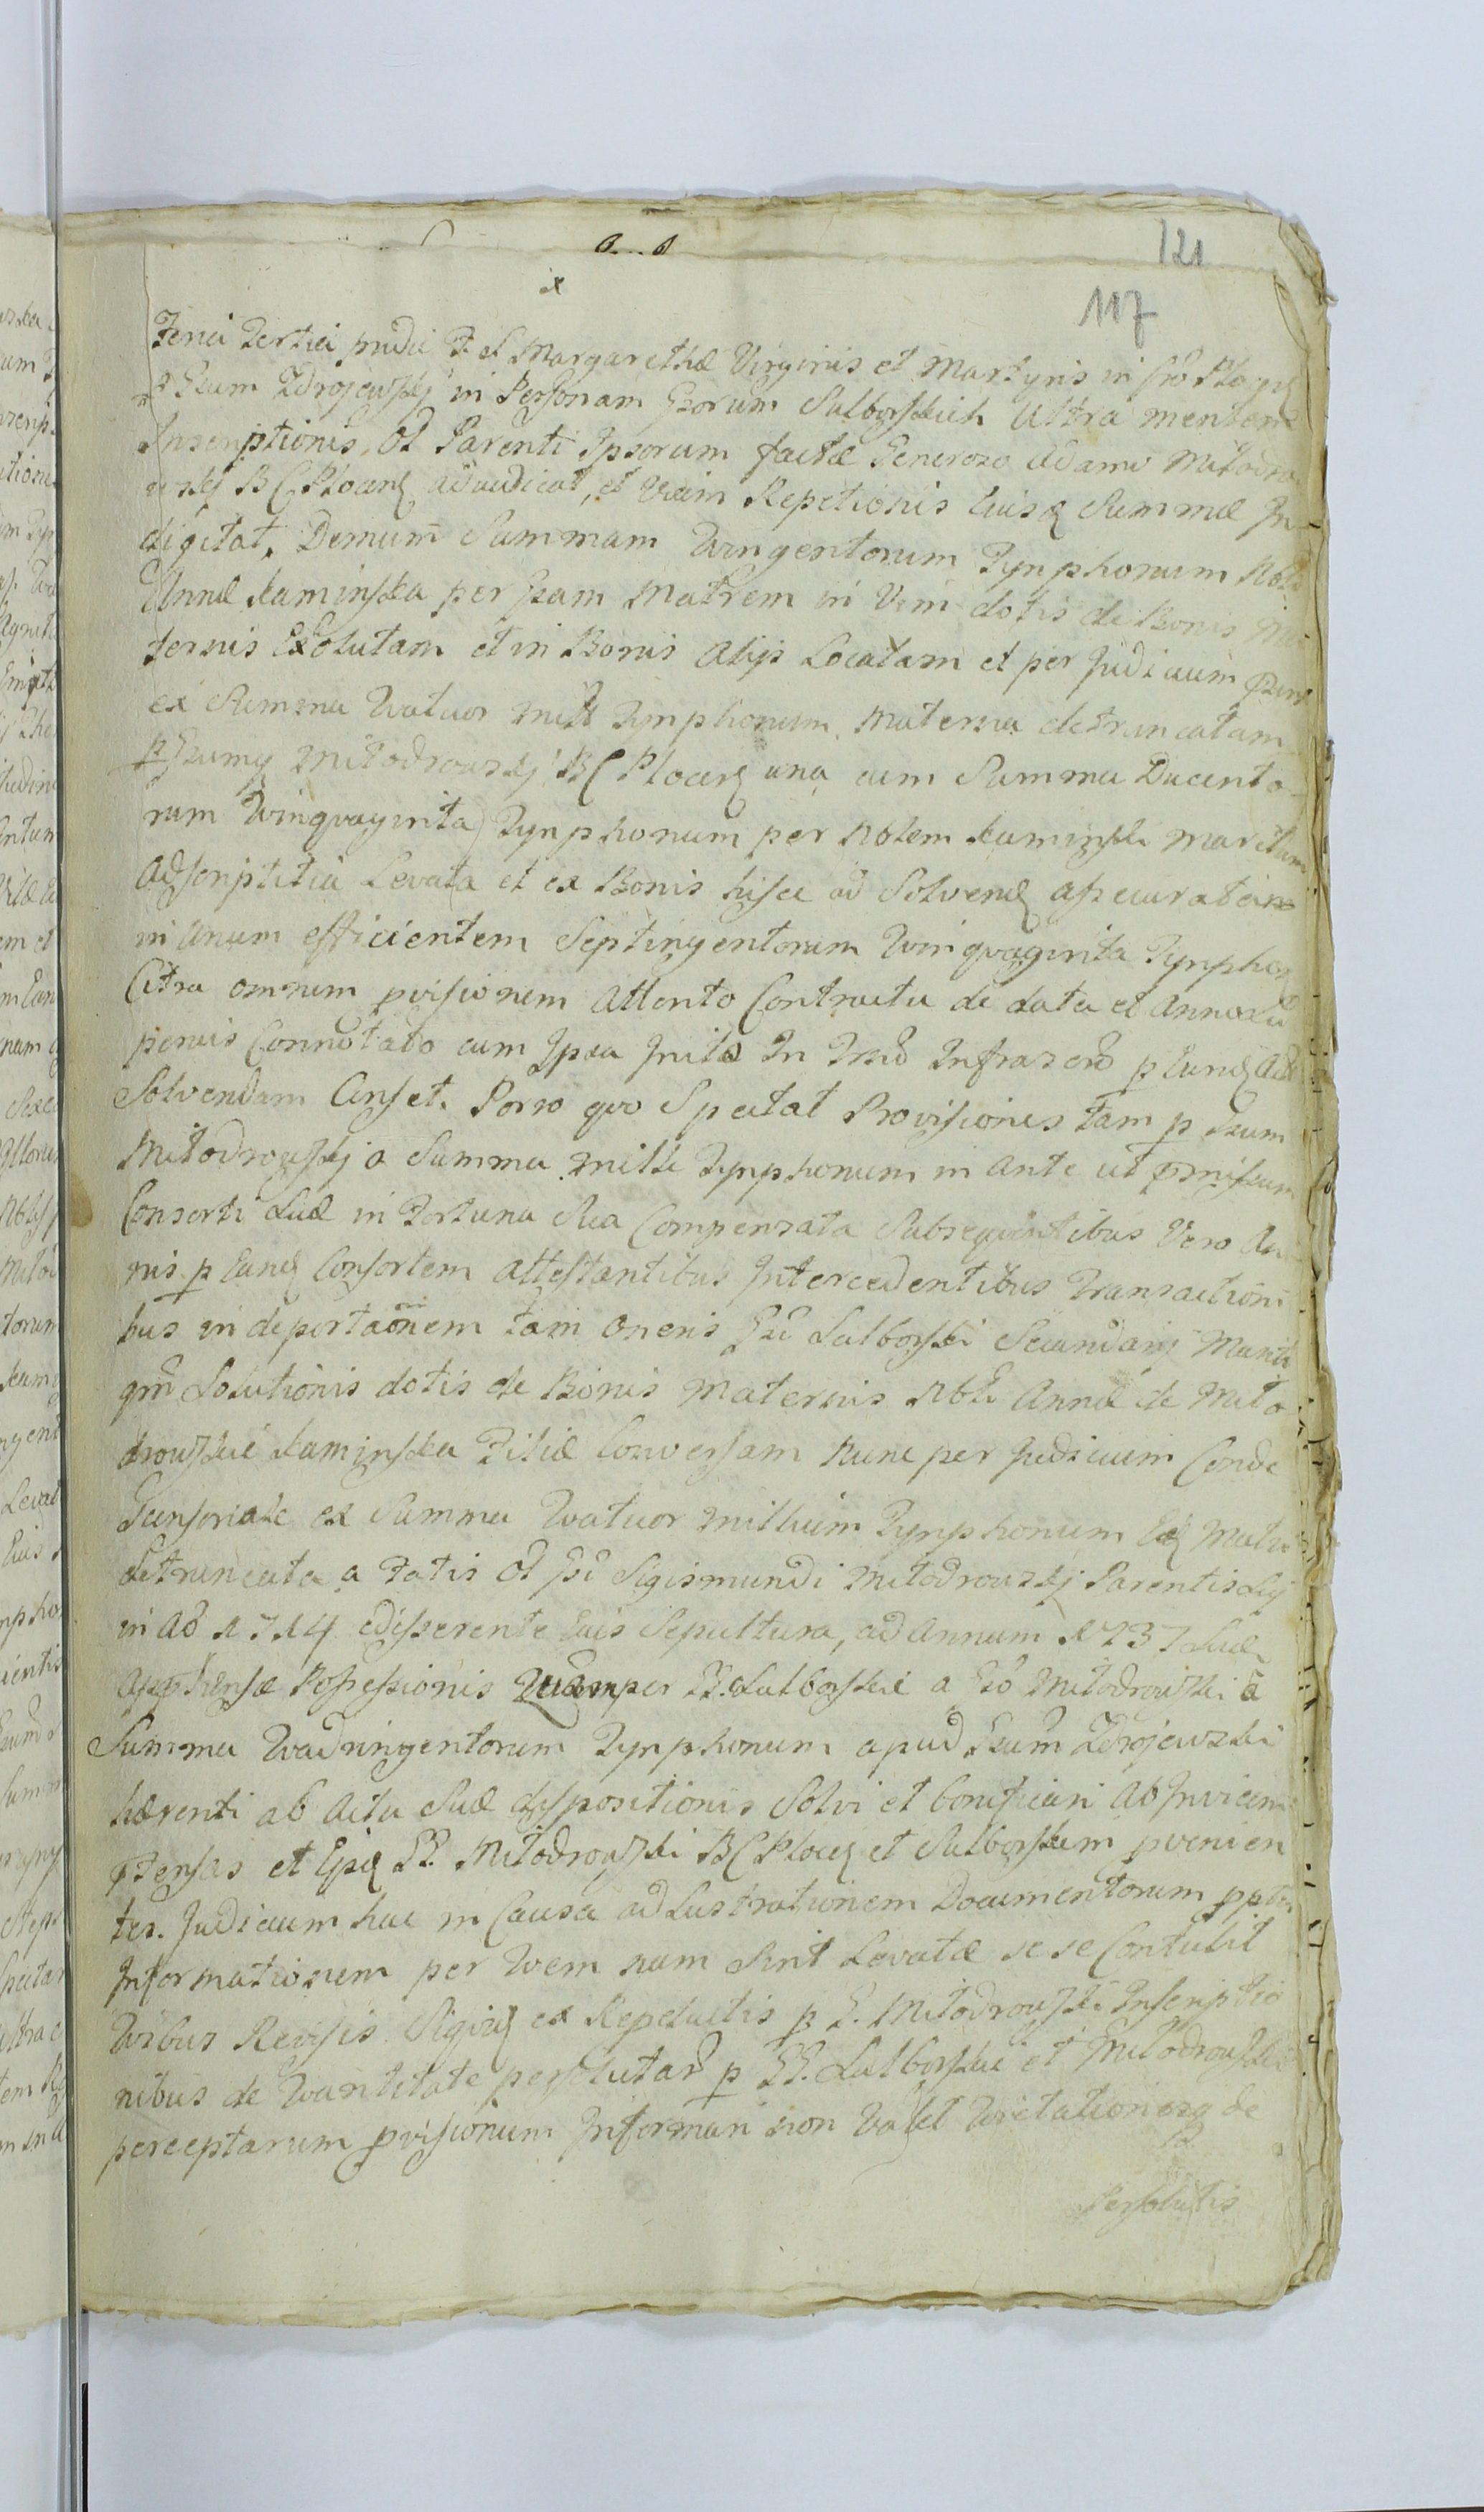 121
117
Feria Tertia pridie F. S Margarethæ Virginis et Martyris in Cro Plocen
p Gsum Zdrojewskj in Personam Gsorum Sulborskich Ultra mentem
Inscriptionis, Ol Parenti Ipsorum factæ Generoso Adamo Mitodro
wskj B C Plocen adiudicat, et Viam Repetionis huiusq Summæ In
digitat. Demum Summam Quingentorum Tynphonum Nobi
Annæ Kaminska per Gsam Matrem in Vim dotis de Bonis Ma
ternis Exolutam et in Bonis Alijs Locatam et per Judicium
ex Summa Quatuor mille Tynphonum Materna detruncatam
p Gsumq Mitodrowskj B C Plocen una cum Summa Ducento
rum Quinquaginta Tynphonum per Nobilem Kaminski Maritum
Adscriptitia Levata et ex Bonis hisce ad Solvend assecuratam
in Unum efficientem Septingentorum Quinquaginta Tynphon
Citra omnem pvisionem Attento Contractu de data et Anno Su
perius Connotato cum Ipsa Inito In Infrascro p Eund
Solvendam Censet. Porro quo Spectat Provisiones tam p Gsum
Mitodrowskj a Summa mille Tynphonum in ante ut pmissum
Consorti Suæ in Fortuna Sua Compensata Subsequentibus Vero An
nis p Eand Consortem Attestantibus Intercedentibus Transactioni
bus in deportaonem tam Oneris Gsi Sulborski Secundarij Mariti
qm Solutionis dotis de Bonis Maternis Nbli Annæ de Mito
drowskie Kaminska Filiæ Conversam Nunc per Judicium Conde
scensoriale ex Summa Quatuor millium Tynphonum Matri
detruncata a Fatis Ol Gsi Sigismundi Mitodrowskj Parentis Sui
in Ao 1714 edisserente Eius Sepultura, ad Annum 1737 Suæ
apphensæ Possessionis Quam per GG. Sulborskie a Gso Mitodrowski a
Summa Quadringentorum Tynphonum apud Gsum Zdrojewski
hærenti ab Actu Suæ dispositionis Solvi et bonificari Ab Invicem
ptensas et GG. Mitodrowski B C Plocen et Sulborskim pvenien
tes. Judicium hac in Causa ad Lustrationem Documentorum ppter
Informationem per Quem nam Sint Levatæ se se Contulit
Quibus Revisis Siquid ex Repetuitis p G. Mitodrowski Inscriptio
nibus de Quantitate persolutar p GG. Sulborskie et Mitodrowski
perceptarum pvisionum Informari non Valet Quietationesq de
Persolutis